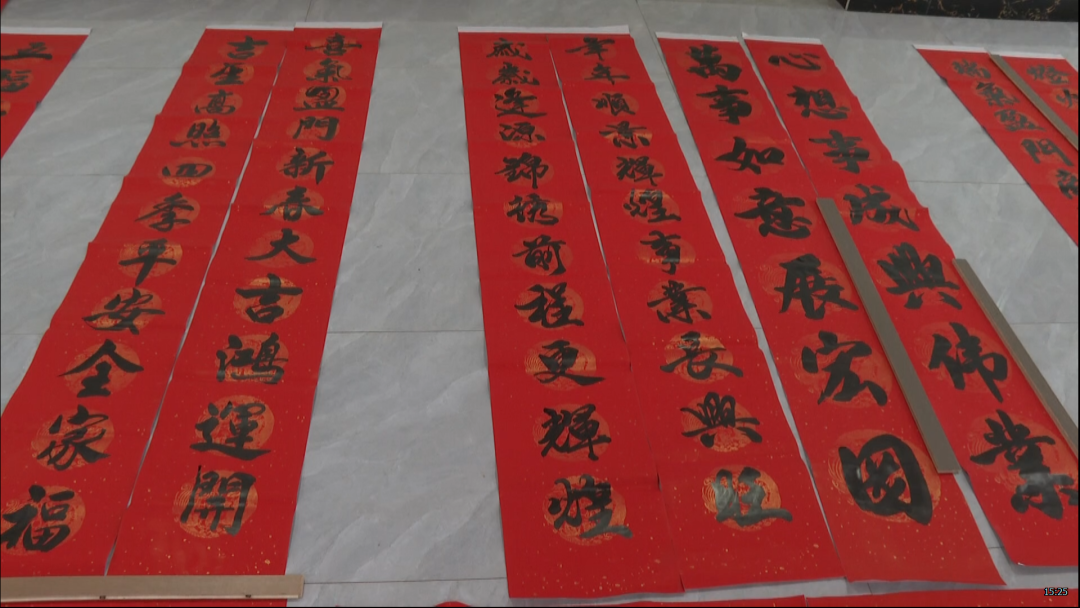 吉星高照四季平安全家福
喜氣盈門新春大吉鴻運開
歲歲逢源錦綉前程更輝煌
年年順景輝煌事業長興旺
萬事如意展宏图
心想事成興伟業
瑞氣盈門
15:25